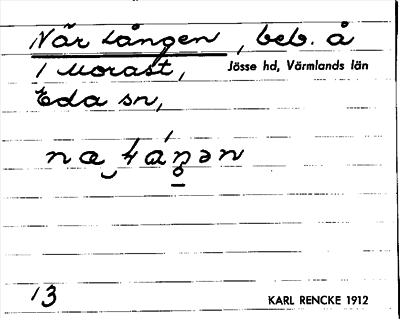 När Lången, beb. å
1 Morast, Jösse hd, Värmlands län
Eda sn,
13 KARL RENCKE 1912